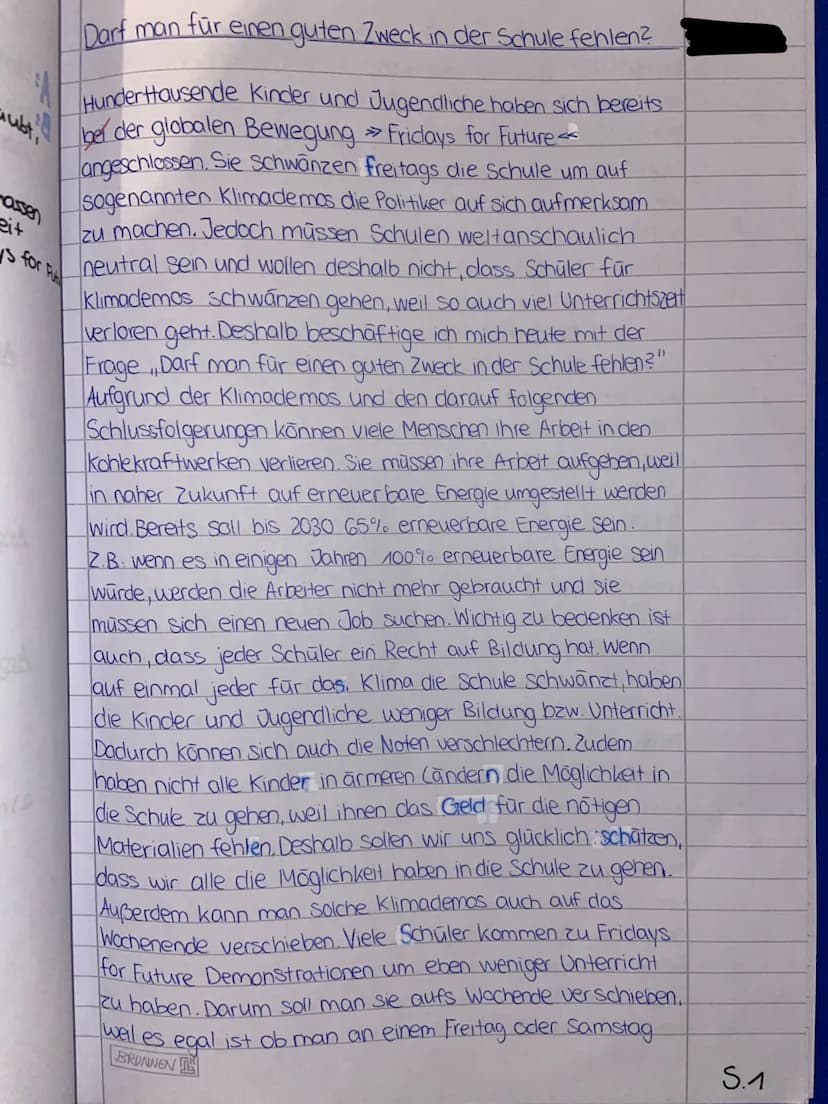 Darf man für einen guten Zweck in der Schule fehlen?
Hunderttausende Kinder und Jugendliche haben sich bereits
bei der globalen Bewegung » Fridays for Future «
angeschlossen. Sie schwänzen freitags die Schule um auf
sogenannten Klimademos die Politiker auf sich aufmerksam
zu machen. Jedoch müssen Schulen weltanschaulich
neutral sein und wollen deshalb nicht, dass Schüler für
Klimademos schwänzen gehen, weil so auch viel Unterrichtszeit
verloren geht. Deshalb beschäftige ich mich heute mit der
Frage „Darf man für einen guten Zweck in der Schule fehlen?"
Aufgrund der Klimademos und den darauf folgenden
Schlussfolgerungen können viele Menschen ihre Arbeit in den
Kohlekraftwerken verlieren. Sie müssen ihre Arbeit aufgeben, weil
in naher Zukunft auf erneuerbare Energie umgestellt werden
wird. Bereits soll bis 2030 65% erneuerbare Energie sein.
Z.B. wenn es in einigen Jahren 100% erneuerbare Energie sein
würde, werden die Arbeiter nicht mehr gebraucht und sie
müssen sich einen neuen Job suchen. Wichtig zu bedenken ist
auch, dass jeder Schüler ein Recht auf Bildung hat. Wenn
auf einmal jeder für das Klima die Schule schwänzt, haben
die Kinder und Jugendliche weniger Bildung bzw. Unterricht.
Dadurch können sich auch die Noten verschlechtern. Zudem
haben nicht alle Kinder in ärmeren Ländern die Möglichkeit in
die Schule zu gehen, weil ihnen das Geld für die nötigen
Materialien fehlen. Deshalb sollen wir uns glücklich schätzen,
dass wir alle die Möglichkeit haben in die Schule zu gehen.
Außerdem kann man solche Klimademos auch auf das
Wochenende verschieben. Viele Schüler kommen zu Fridays
for Future Demonstrationen um eben weniger Unterricht
zu haben. Darum soll man sie aufs Wochende verschieben,
weil es egal ist ob man an einem Freitag oder Samstag
BRUNNEN
S.1